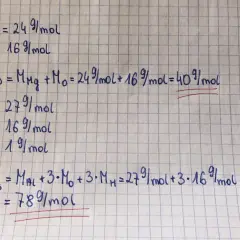 = 24 g/mol
16 g/mol
= M Mg + M O = 24 g/mol + 16 g/mol = 40 g/mol
27 g/mol
16 g/mol
1 g/mol
= M Al + 3·M O + 3·M H = 27 g/mol + 3·16 g/mol
= 78 g/mol